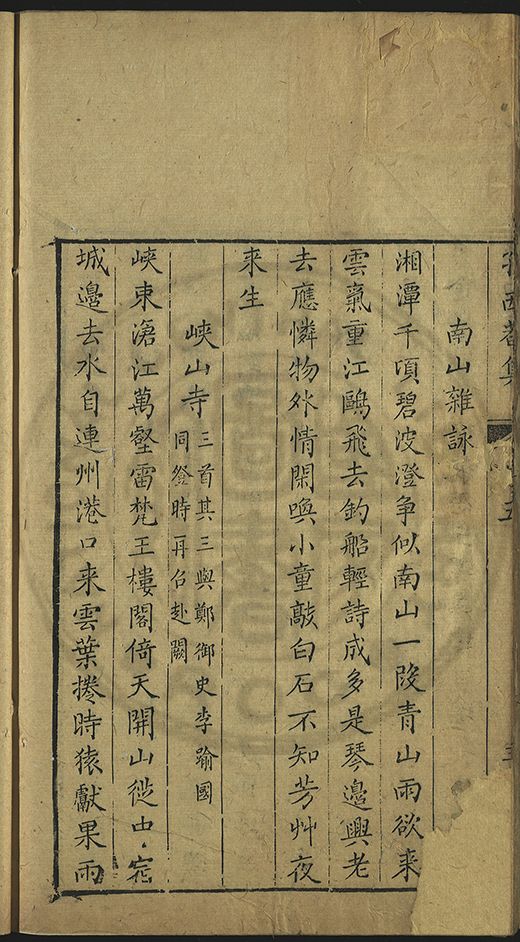 西巷集
南山雜詠
湘潭千頃碧波澄爭似南山一段青山雨欲来
雲氣重江鷗飛去釣船輕詩成多是琴邊興老
去應憐物外情閑喚小童敲白石不知芳艸夜
来生
峽山寺三首其三與鄭御史李喻國
同登時再召赴闕
峽東滄江萬壑雷梵王樓閣倚天開山從中宿
城邊去水自連州港口来雲葉捲時猿獻果雨